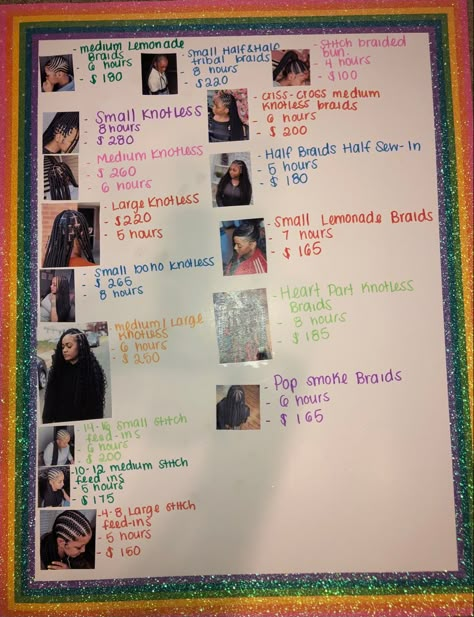 - medium Lemonade
Braids
- 6 hours
- $ 180
- Small Half&Half
tribal braids
- 8 hours
- $220
- Stitch braided
bun
- 4 hours
- $100
- Small Knotless
8 hours
$ 280
- Criss-Cross medium
Knotless braids
- 6 hours
- $ 200
- Medium Knotless
- $ 260
- 6 hours
- Half Braids Half Sew-In
- 5 hours
- $ 180
- Large Knotless
- $220
- 5 hours
- Small Lemonade Braids
- 7 hours
- $ 165
- Small boho Knotless
- $ 265
- 8 hours
- Heart Part Knotless
Braids
- 8 hours
- $ 185
- medium/Large
Knotless
- 6 hours
- $ 250
- Pop smoke Braids
- 6 hours
- $ 165
- 14-16 Small Stitch
feed-ins
- 6 hours
- $ 200
- 10-12 medium Stitch
feed ins
- 5 hours
- $ 175
- 4-8 Large Stitch
feed-ins
- 5 hours
- $ 150